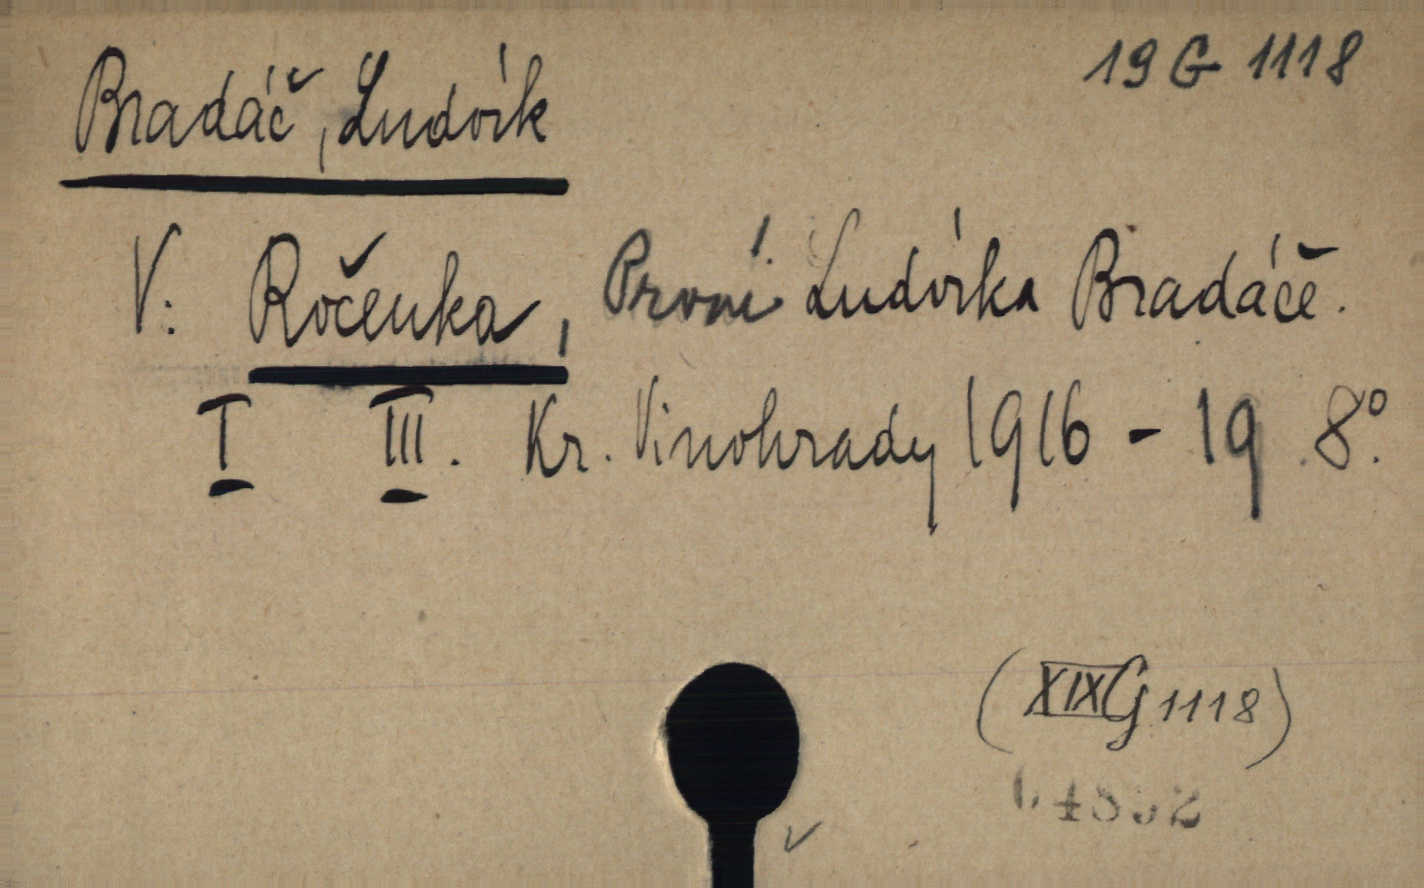 19 G 1118
Bradáč, Ludvík
V: Ročenka, První Ludvíka Bradáče.
I III. Kr. Vinohrady 1916 - 19 . 8°.
(XIX G 1118)